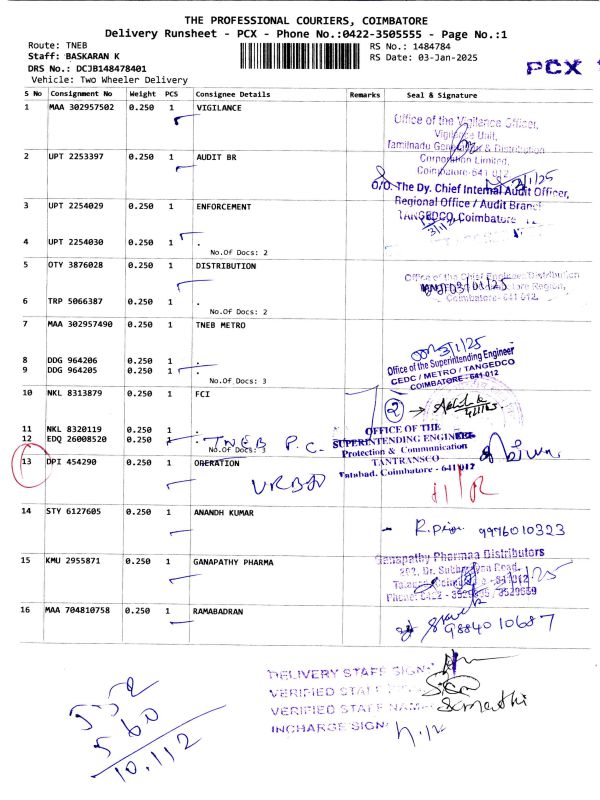 THE PROFESSIONAL COURIERS, COIMBATORE
Delivery Runsheet - PCX - Phone No.:0422-3505555 - Page No.:1
Route: TNEB
RS No.: 1484784
Staff: BASKARAN K
RS Date: 03-Jan-2025
DRS No.: DCJB148478401
PCX
Vehicle: Two Wheeler Delivery
S No Consignment No Weight PCS Consignee Details Remarks Seal & Signature
1 MAA 302957502 0.250 1 VIGILANCE
Office of the Vigilance Officer,
Vigilance Unit,
Tamilnadu & Distribution
Corporation Limited,
Coimbatore-641 012
2 UPT 2253397 0.250 1 AUDIT BR
3/1/25
O/O. The Dy. Chief Internal Audit Officer,
Regional Office / Audit Branch
TANGEDCO, Coimbatore - 12
3 UPT 2254029 0.250 1 ENFORCEMENT
3/1/25
4 UPT 2254030 0.250 1 .
No.Of Docs: 2
5 OTY 3876028 0.250 1 DISTRIBUTION
Office of the Chief Engineer/Distribution
03/01/25 Region,
Coimbatore-641 012.
6 TRP 5066387 0.250 1 .
No.Of Docs: 2
7 MAA 302957490 0.250 1 TNEB METRO
3/1/25
Office of the Superintending Engineer
CEDC / METRO / TANGEDCO
COIMBATORE - 641 012
8 DDG 964206 0.250 1 .
9 DDG 964205 0.250 1 .
No.Of Docs: 3
10 NKL 8313879 0.250 1 FCI
2
11 NKL 8320119 0.250 1 .
12 EDQ 26008520 0.250 1 .
No.Of Docs: 3
TNEB P.C.
OFFICE OF THE
SUPERINTENDING ENGINEER
Protection & Communication
TANTRANSCO
Tatabad, Coimbatore - 641 012
13 DPI 454290 0.250 1 OPERATION
14 STY 6127605 0.250 1 ANANDH KUMAR
9976010323
15 KMU 2955871 0.250 1 GANAPATHY PHARMA
Ganapathy Pharmaa Distributors
Phone: 0422 - 3529559
16 MAA 704810758 0.250 1 RAMABADRAN
9884010687
DELIVERY STAFF SIGN:
VERIFIED STAFF
VERIFIED STAFF NAME:
INCHARGE SIGN:
552
560
10.112